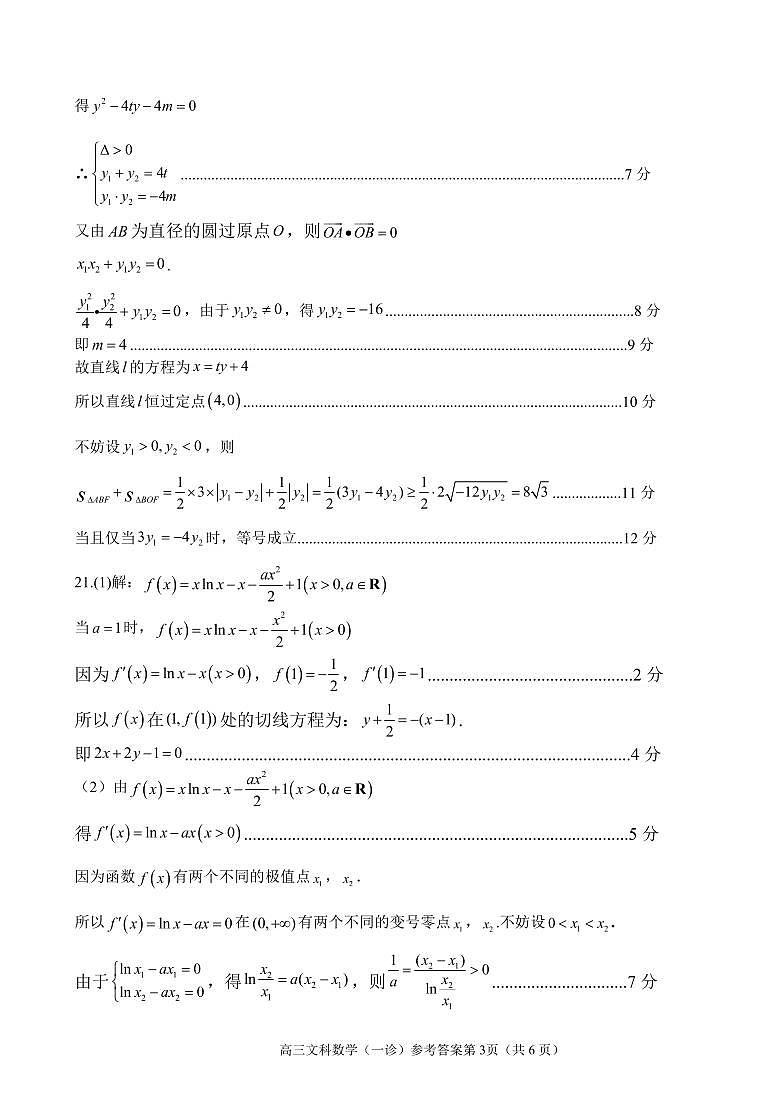 得 y² − 4ty − 4m = 0
∴ { Δ > 0
y₁ + y₂ = 4t ........................7 分
y₁ · y₂ = −4m
又由 AB 为直径的圆过原点 O，则 OA⃗ • OB⃗ = 0
x₁x₂ + y₁y₂ = 0．
y₁²/4 • y₂²/4 + y₁y₂ = 0，由于 y₁y₂ ≠ 0，得 y₁y₂ = −16 ........................8 分
即 m = 4 ........................9 分
故直线 l 的方程为 x = ty + 4
所以直线 l 恒过定点 (4,0) ........................10 分
不妨设 y₁ > 0, y₂ < 0，则
S△ABF + S△BOF = 1/2 × 3 × |y₁ − y₂| + 1/2 |y₂| = 1/2 (3y₁ − 4y₂) ≥ 1/2 · 2√(−12y₁y₂) = 8√3 ..................11 分
当且仅当 3y₁ = −4y₂ 时，等号成立........................12 分
21.(1)解：f(x) = x ln x − x − ax²/2 + 1(x > 0, a ∈ R)
当 a = 1 时，f(x) = x ln x − x − x²/2 + 1(x > 0)
因为 f′(x) = ln x − x(x > 0)，f(1) = −1/2，f′(1) = −1 ........................2 分
所以 f(x) 在 (1, f(1)) 处的切线方程为：y + 1/2 = −(x − 1)．
即 2x + 2y − 1 = 0 ........................4 分
（2）由 f(x) = x ln x − x − ax²/2 + 1(x > 0, a ∈ R)
得 f′(x) = ln x − ax(x > 0) ........................5 分
因为函数 f(x) 有两个不同的极值点 x₁，x₂．
所以 f′(x) = ln x − ax = 0 在 (0, +∞) 有两个不同的变号零点 x₁，x₂.不妨设 0 < x₁ < x₂．
由于 { ln x₁ − ax₁ = 0 ln x₂ − ax₂ = 0，得 ln x₂/x₁ = a(x₂ − x₁)，则 1/a = (x₂ − x₁)/(ln x₂/x₁) > 0 ........................7 分
高三文科数学（一诊）参考答案第 3页（共 6 页）